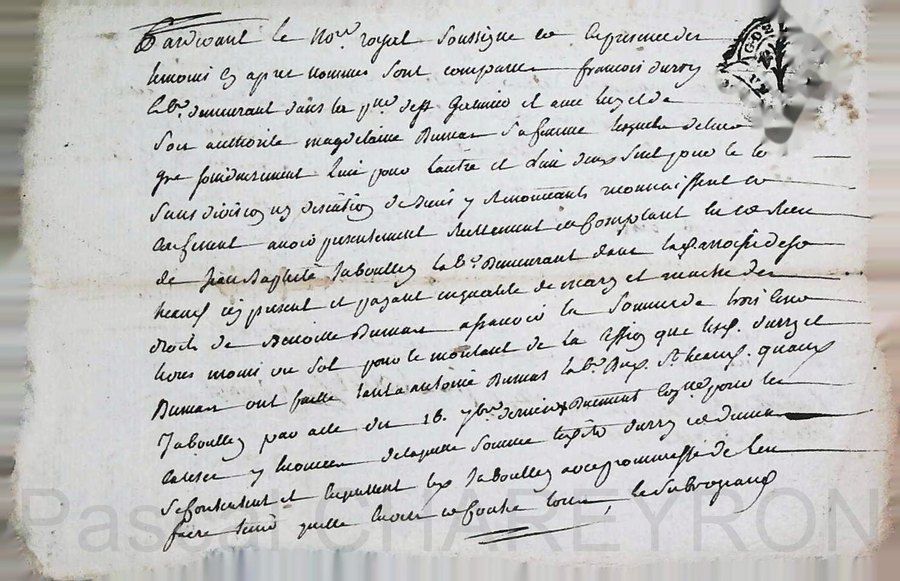 Pardevant le No.re royal Soussigne en la presence des
temoins cy apres nommes sont comparus francois durry
lab.r demeurant dans la p.sse de st Germier et avec luy et de
Son authorite magdelaine Dumas Sa femme lesquels de leur
gre solidairement l'un pour l'autre et l'un d'eux seul pour le to
Sans division ny discution de biens y Renoncants reconnoissent et
confessent avoir presentement Reellement et comptant Receu
de Jean Baptiste Jaboulley lab.r Demeurant dans la parroisse de
heand icy present et payant en qualite de mary et maitre des
droits de Benoitte Dumas a scavoir la Somme de trois cens
livres moins un Sol pour le montant de la que les durry et
Dumas ont faitte tant a antoine Dumas lab.r Dud. St heand. quaud.
Jaboulley par acte du 16. 7bre dernier pour les
causes y enoncees de laquelle Somme les dits durry et dumas
Se contentent et quittent led. Jaboulley avec promesse de l'en
faire tenir quitte envers et contre tous, le Subrogeant
Pascal CHAREYRON